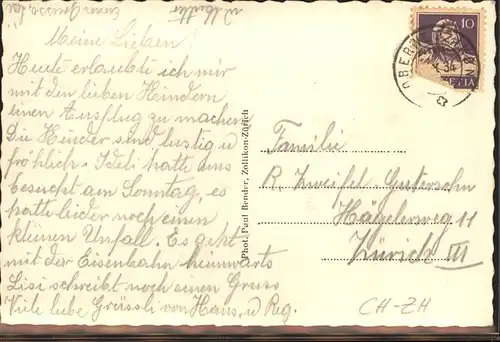 Meine Lieben!
Heute erlaubte ich mir
mit den lieben Kindern
einen Ausflug zu machen
Die Kinder sind lustig u
fröhlich. Ideli hatte uns
besucht am Sonntag, es
hatte leider noch einen
kleinen Unfall. Es geht
mit der Eisenbahn heimwärts
Lisi schreibt noch einen Gruss
Viele liebe Grüssli von Hans, u Reg.
u Mutter
Phot. Paul Bender, Zollikon-Zürich
10
HELVETIA
OBER
34
Familie
R. Zweifel-Gutersohn
Hägelerweg 11
Zürich III
CH-ZH